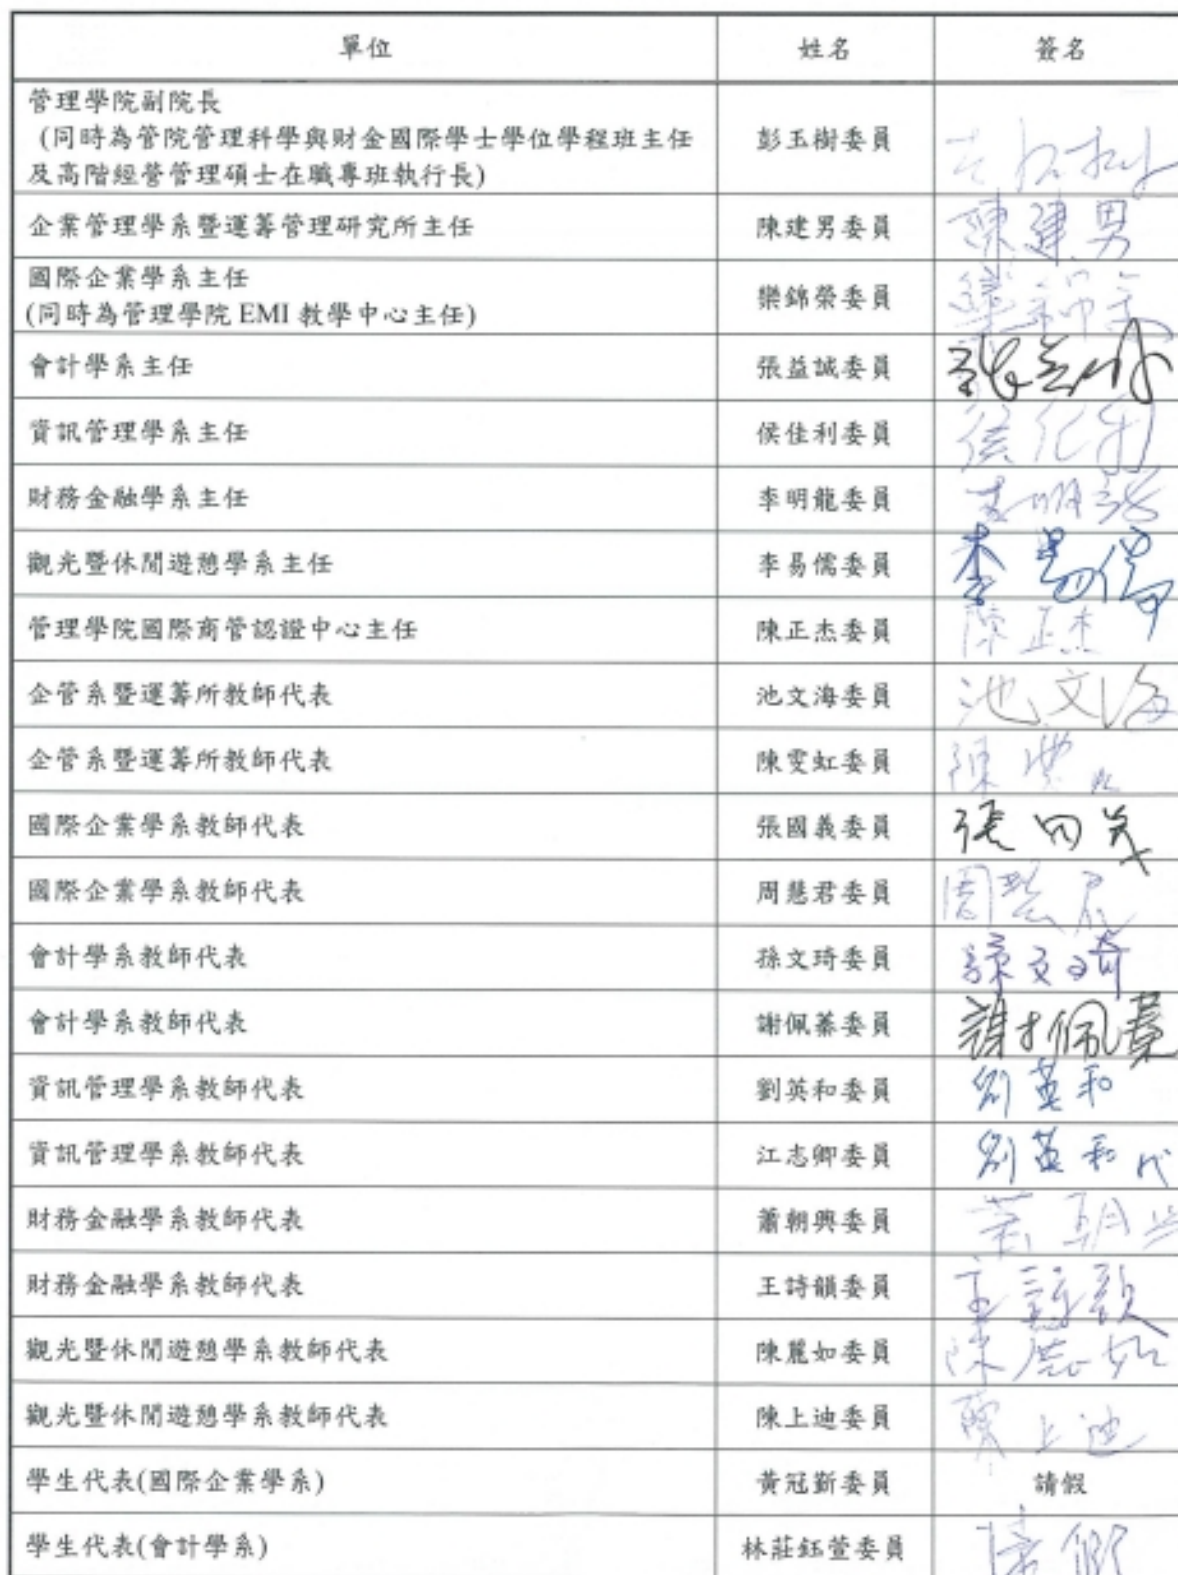 單位 姓名 簽名
管理學院副院長
(同時為管院管理科學與財金國際學士學位學程班主任
及高階經營管理碩士在職專班執行長) 彭玉樹委員
企業管理學系暨運籌管理研究所主任 陳建男委員 陳建男
國際企業學系主任
(同時為管理學院 EMI 教學中心主任) 欒錦榮委員 欒錦榮
會計學系主任 張益誠委員
資訊管理學系主任 侯佳利委員 侯佳利
財務金融學系主任 李明龍委員 李明龍
觀光暨休閒遊憩學系主任 李易儒委員 李易儒
管理學院國際商管認證中心主任 陳正杰委員 陳正杰
企管系暨運籌所教師代表 池文海委員 池文海
企管系暨運籌所教師代表 陳雯虹委員
國際企業學系教師代表 張國義委員 張国義
國際企業學系教師代表 周慧君委員 周慧君
會計學系教師代表 孫文琦委員 孫文琦
會計學系教師代表 謝佩蓁委員 謝佩蓁
資訊管理學系教師代表 劉英和委員 劉英和
資訊管理學系教師代表 江志卿委員 劉英和代
財務金融學系教師代表 蕭朝興委員
財務金融學系教師代表 王詩韻委員 王詩韻
觀光暨休閒遊憩學系教師代表 陳麗如委員 陳麗如
觀光暨休閒遊憩學系教師代表 陳上迪委員 陳上迪
學生代表(國際企業學系) 黃冠斳委員 請假
學生代表(會計學系) 林莊鈺萱委員 請假